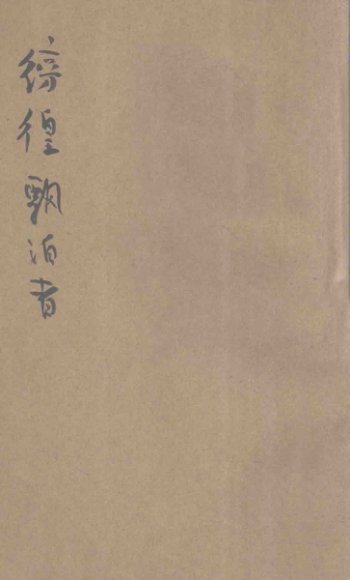 徬徨飄泊者